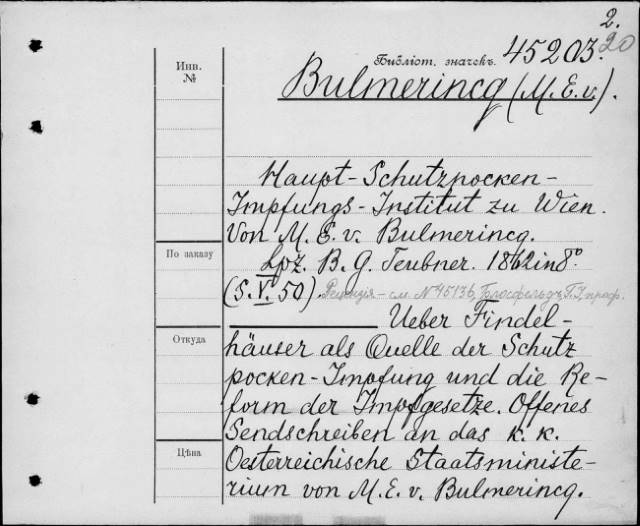 2.
20
Инв.
№
Библіот. значекъ. 45203.
Bulmerincq (M. E. v.).
Haupt-Schutzpocken-
Impfungs-Institut zu Wien.
Von M. E. v. Bulmerincq.
По заказу
Lpz. B. G. Teubner. 1862 in 8°
(S. V. 50). Рецензія - см. № 45136,
Откуда
Ueber Findel-
häuser als Quelle der Schutz
pocken-Impfung und die Re-
form der Impfgesetze. Offenes
Sendschreiben an das k. k.
Цѣна
Oesterreichische Staatsministe-
rium von M. E. v. Bulmerincq.